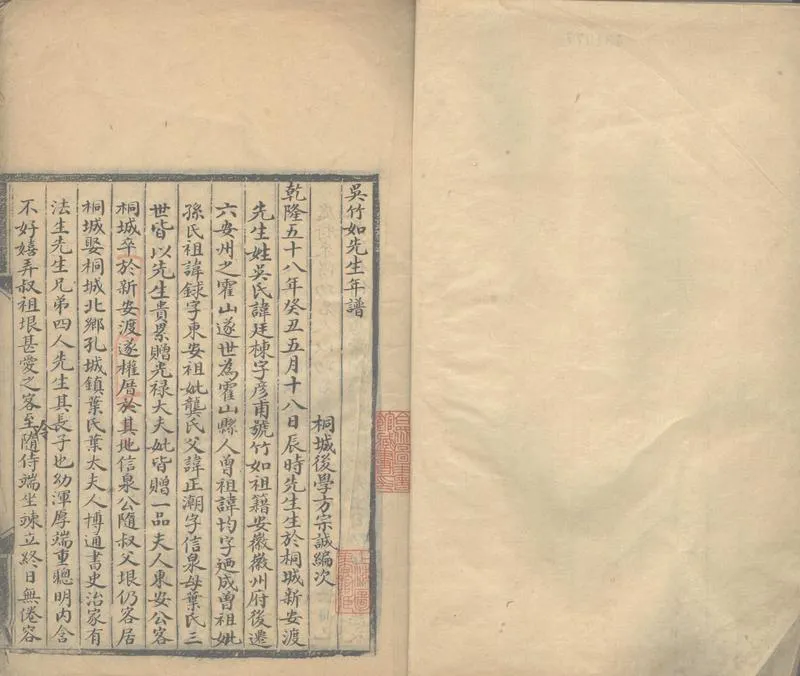 吳竹如先生年譜
桐城後學方宗誠編次
乾隆五十八年癸丑五月十八日辰時先生生於桐城新安渡
先生姓吳氏諱廷棟字彥甫號竹如祖籍安徽徽州府後遷
六安州之霍山遂世為霍山縣人曾祖諱均字廼成曾祖妣
孫氏祖諱錄字東安祖妣龔氏父諱正潮字信泉母葉氏三
世皆以先生貴累贈光禄大夫妣皆贈一品夫人東安公客
桐城卒於新安渡遂權厝於其地信泉公隨叔父垠仍客居
桐城娶桐城北鄉孔城鎮葉氏葉太夫人博通書史治家有
法生先生兄弟四人先生其長子也幼渾厚端重聰明内含
不好嬉弄叔祖垠甚愛之客至隨侍端坐竦立終日無倦容